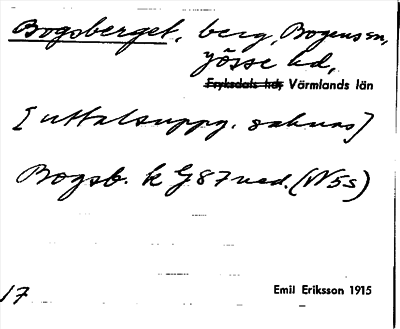 Bogsberget, berg, Bogens sn,
Jösse hd,
Fryksdals hd, Värmlands län
[uttalsuppg. saknas]
Bogsb. k G87 ned. (N5s)
17
Emil Eriksson 1915